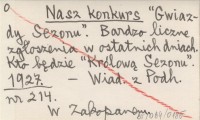 o
Nasz konkurs "Gwiaz-
dy Sezonu". Bardzo liczne
zgłoszenia w ostatnich dniach.
Kto będzie "Królową Sezonu".
1927. – Wiad. z Podh.
nr 214.
W Zakopanem